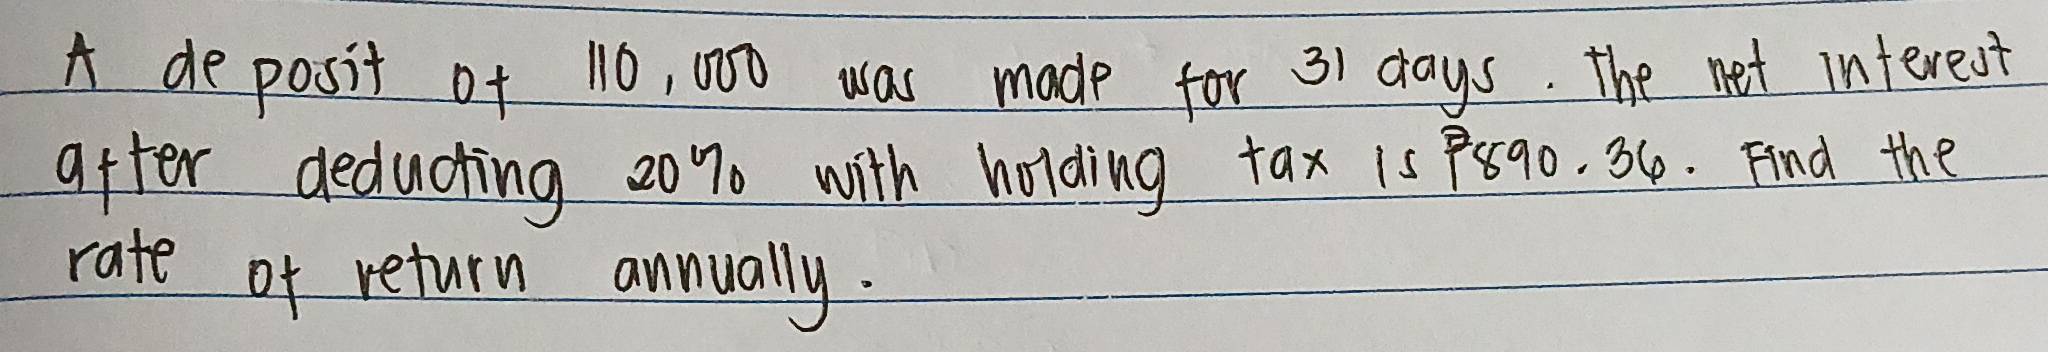 A deposit of 110,000 was made for 31 days. The net interest
after deducting 20% with holding tax is ₱890.36. Find the
rate of return annually.